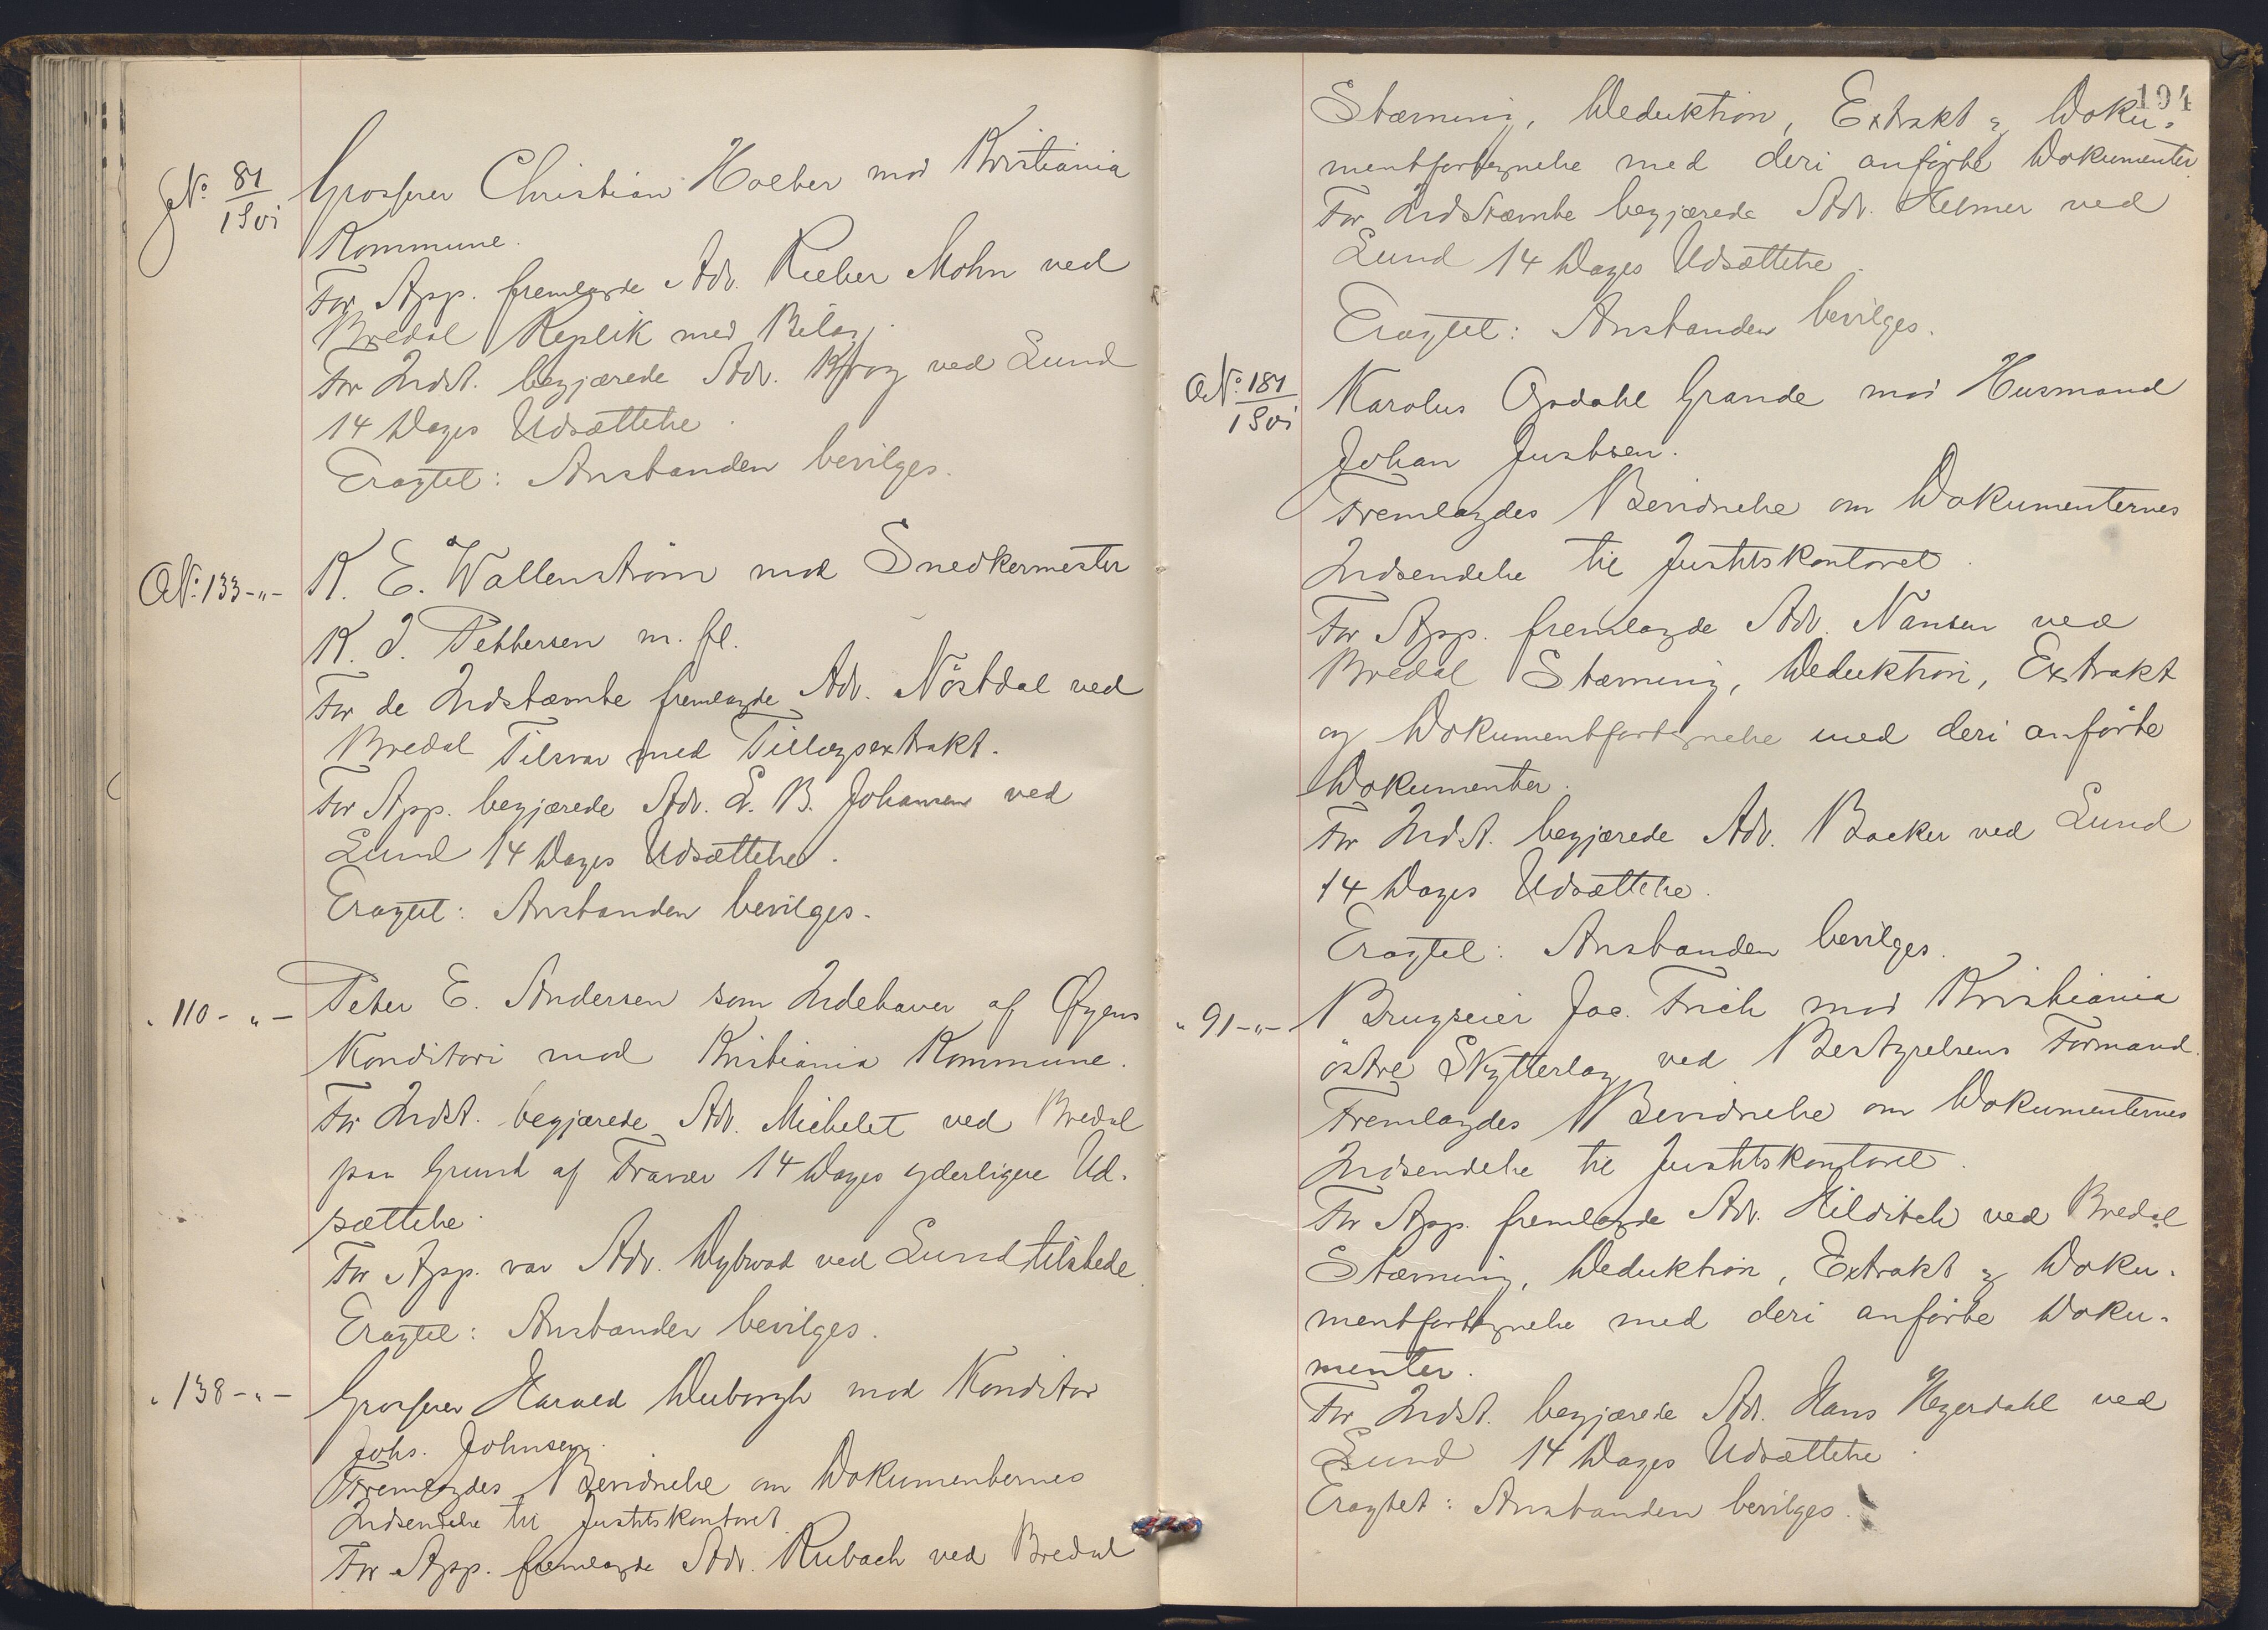 No. 81/1901 Grosserer Christian Holter mod Kristiania
Kommune.
For App. fremlagde Adv. Rieber Mohn ved
Bredal Replik med Bilag.
For Indst. begjærede Adv. Krog ved Lund
14 Dages Udsættelse.
Eragtet: Anstanden bevilges.
No. 133 -„- K. E. Wallenström mod Snedkermester
K. J. Pettersen m. fl.
For de Indstævnte fremlagde Adv. Nöstdal ved
Bredal Tilsvar med Tillægsextrakt.
For App. begjærede Adv. L. B. Johansen ved
Lund 14 Dages Udsættelse.
Eragtet: Anstanden bevilges.
„ 110 - „ - Peter E. Andersen som Indehaver af Øyens
Konditori mod Kristiania Kommune.
For Indst. begjærede Adv. Michelet ved Bredal
paa Grund af Fravær 14 Dages yderligere Ud-
sættelse.
For App. var Adv. Dybwad ved Lund tilstede.
Eragtet: Anstanden bevilges.
„ 138 - „ - Grosserer Harald Duborgh mod Konditor
Johs. Johnsen.
Fremlagdes Bevidnelse om Dokumenternes
Indsendelse til Justitskontoret.
For App. fremlagde Adv. Rubach ved Bredal
194
Stævning, Deduktion, Extrakt & Doku-
mentfortegnelse med deri anførte Dokumenter.
For Indstævnte begjærede Adv. Helmer ved
Lund 14 Dages Udsættelse.
Eragtet: Anstanden bevilges.
No. 181/1901 Karolus Opdahl Grande mod Husmand
Johan Justsen.
Fremlagdes Bevidnelse om Dokumenternes
Indsendelse til Justitskontoret.
For App. fremlagde Adv. Nansen ved
Bredal Stævning, Deduktion, Extrakt
og Dokumentfortegnelse med deri anförte
Dokumenter.
For Indst. begjærede Adv. Backer ved Lund
14 Dages Udsættelse.
Eragtet: Anstanden bevilges.
„ 91 - „ - Brugseier Jac. Frich mod Kristiania
östre Skytterlag ved Bestyrelsens Formand.
Fremlagdes Bevidnelse om Dokumenternes
Indsendelse til Justitskontoret.
For App. fremlagde Adv. Hilditch ved Bredal
Stævning, Deduktion, Extrakt & Doku-
mentfortegnelse med deri anførte Doku-
menter.
For Indst. begjærede Adv. Hans Heyerdahl ved
Lund 14 Dages Udsættelse.
Eragtet: Anstanden bevilges.